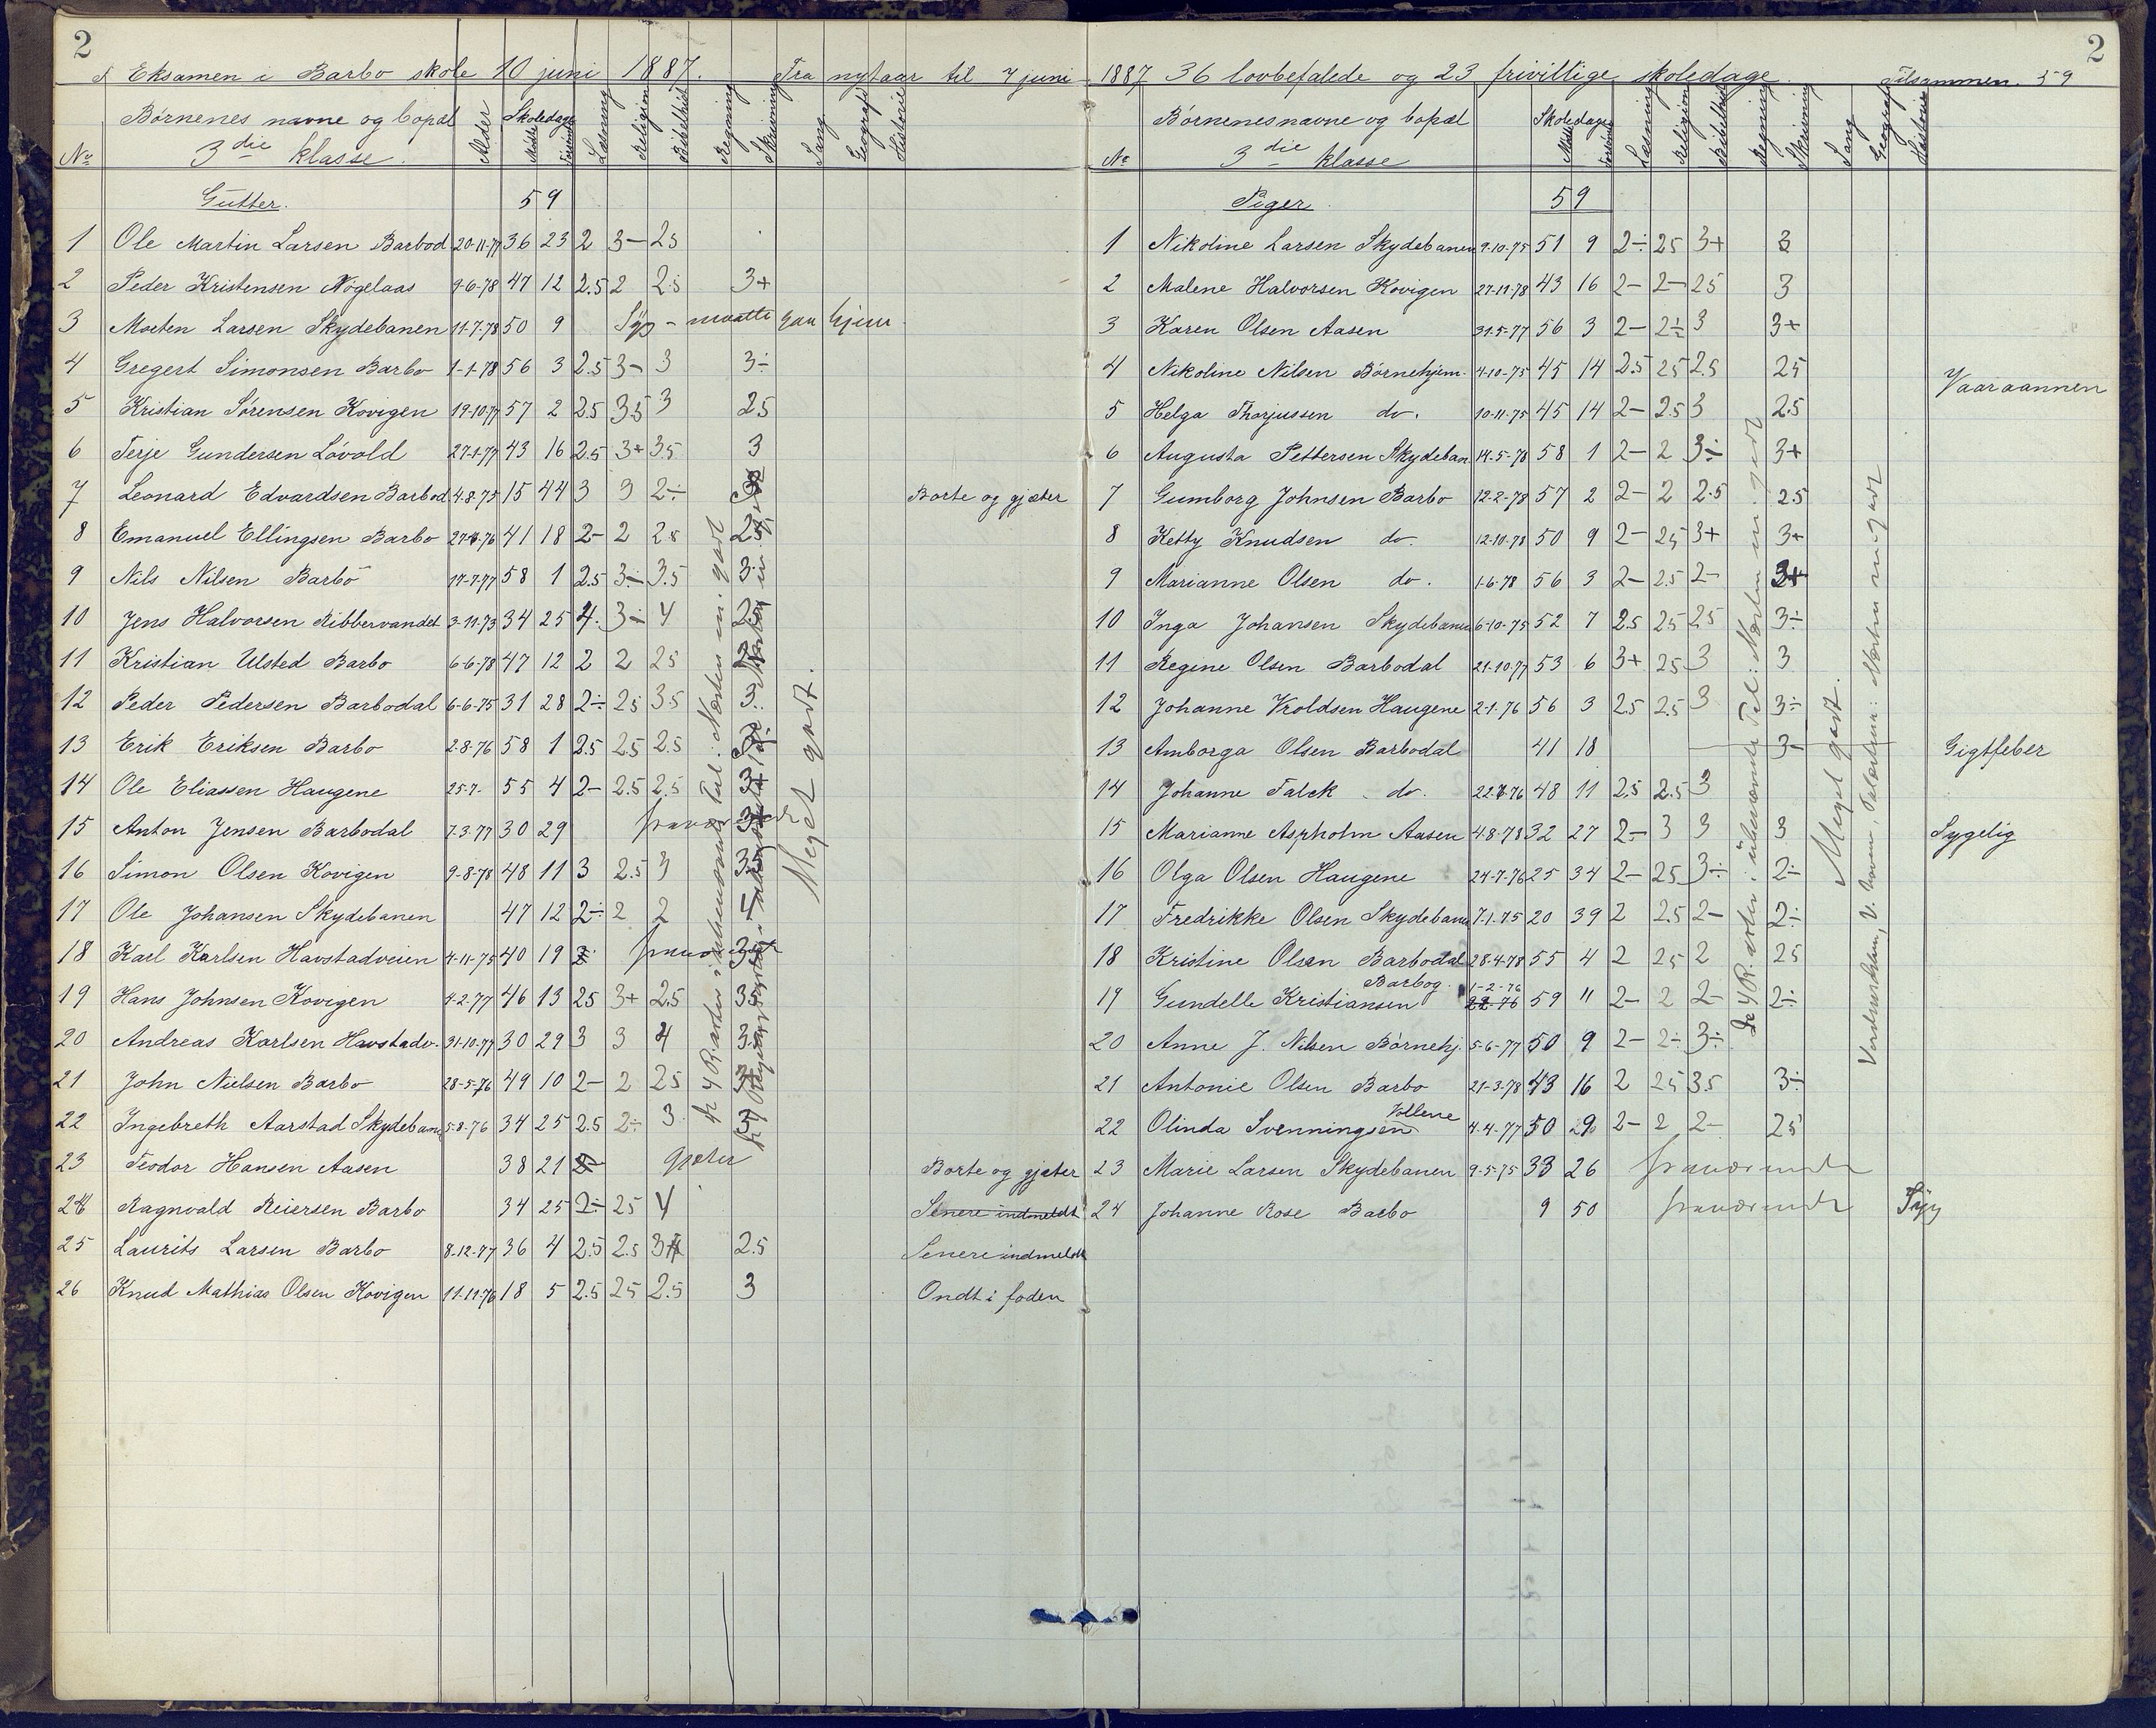 2
Eksamen i Barbo skole 10 juni 1887. Fra nytaar til 7 juni
No Børnenes navne og bopæl Alder Skoledage Mødte Forsømte Læsning Religion Bibelhist Regning Skrivning Sang Geografi Historie
3die klasse.
Gutter. 59
1 Ole Martin Larsen Barbod 20-11-77 36 23 2 3- 2.5
2 Peder Kristensen Nøgelaas 9-6-78 47 12 2.5 2 2.5 3+
3 Morten Larsen Skydebanen 11-7-78 50 9 Syg - maatte gaa hjem.
4 Gregert Simonsen Barbo 1-1-78 56 3 2.5 3- 3 3÷
5 Kristian Sørensen Kovigen 19-10-77 57 2 2.5 3.5 3 2.5
6 Terje Gundersen Løvold 27-1-77 43 16 2.5 3+ 3.5 3
7 Leonard Edvardsen Barbod 4-8-75 15 44 3 3 2÷ Borte og gjæter
8 Emanuel Ellingsen Barbo 27-8-76 41 18 2- 2 2.5 2.5
9 Nils Nilsen Barbo 17-7-77 58 1 2.5 3÷ 3.5 3
10 Jens Halvorsen Ribbervandet 3-11-73 34 25 4. 3÷ 4 2.5
11 Kristian Ulsted Barbo 6-6-78 47 12 2 2 2.5
12 Peder Pedersen Barbodal 6-6-75 31 28 2÷ 2.5 3.5 3
13 Erik Eriksen Barbo 2-8-76 58 1 2.5 2.5 2.5
14 Ole Eliassen Haugene 25-7- 55 4 2- 2.5 2.5 3+
15 Anton Jensen Barbodal 7-3-77 30 29 fraværende
16 Simon Olsen Kovigen 9-8-78 48 11 3 2.5 3 3.5
17 Ole Johansen Skydebanen 47 12 2÷ 2 2 4
18 Karl Karlsen Havstadveien 4-11-75 40 19 fraværende 3.5
19 Hans Johnsen Kovigen 4-2-77 46 13 2.5 3+ 2.5 3.5
20 Andreas Karlsen Havstadv. 31-10-77 30 29 3 3 4 3
21 John Nielsen Barbo 28-5-76 49 10 2- 2 2.5
22 Ingebreth Aarstad Skydeban 5-8-76 34 25 2.5 2÷ 3 3
23 Teodor Hansen Aasen 38 21 gjæter Borte og gjæter
24 Ragnvald Reiersen Barbo 34 25 2÷ 2.5 4 Senere indmeldt
25 Laurits Larsen Barbo 8-12-77 36 4 2.5 2.5 3 2.5 Senere indmeldt
26 Knud Mathias Olsen Kovigen 11-11-76 18 5 2.5 2.5 2.5 3 Ondt i foden
Meget godt.
2
1887 36 lovbefalede og 23 frivillige skoledage. Tilsammen. 59
No Børnenes navne og bopæl Skoledage Mødte Forsømte Læsning Religion Bibelhist Regning Skrivning Sang Geografi Historie
3die klasse
Piger 59
1 Nikoline Larsen Skydebanen 9-10-75 51 9 2÷ 2.5 3+ 3
2 Malene Halvorsen Kovigen 27-11-78 43 16 2- 2- 2.5 3
3 Karen Olsen Aasen 31-5-77 56 3 2- 2÷ 3 3+
4 Nikoline Nilsen Børnehjem. 4-10-75 45 14 2.5 2.5 2.5 2.5 Vaaraannen
5 Helga Thorjussen do. 10-11-75 45 14 2- 2.5 3 2.5
6 Augusta Pettersen Skydeban 14-5-78 58 1 2- 2 3÷ 3+
7 Gumborg Johnsen Barbo 12-2-78 57 2 2- 2 2.5 2.5
8 Ketty Knudsen do. 12-10-78 50 9 2- 2.5 3+ 3+
9 Marianne Olsen do. 1-6-78 56 3 2- 2.5 2- 3+
10 Inga Johansen Skydebanen 6-10-75 52 7 2.5 2.5 2.5 3÷
11 Regine Olsen Barbodal 21-10-77 53 6 3+ 2.5 3 3
12 Johanne Vroldsen Haugene 2-1-76 56 3 2.5 2.5 3 3÷
13 Amborga Olsen Barbodal 41 18 3- Gigtfeber
14 Johanne Falck do. 22-8-76 48 11 2.5 2.5 3
15 Marianne Aspholm Aasen 4-8-78 32 27 2- 3 3 3 Sygelig
16 Olga Olsen Haugene 24-7-76 25 34 2- 2.5 3÷ 2÷
17 Fredrikke Olsen Skydebanen 7-1-75 20 39 2 2.5 2- 2÷
18 Kristine Olsen Barbodal 28-4-78 55 4 2 2.5 2 2.5
19 Gundelle Kristiansen Barbog. 1-2-76 59 " 2- 2 2- 2÷
20 Anne J. Nilsen Børnehj. 5-6-77 50 9 2- 2÷ 3÷
21 Antonie Olsen Barbo 21-3-78 43 16 2 2.5 3.5 3÷
22 Olinda Svenningsen Vollene 4-4-77 50 29 2- 2 2- 2.5
23 Marie Larsen Skydebanen 9-5-75 33 26 fraværende
24 Johanne Rose Barbo 9 50 fraværende Syg
De 4 R. arter i ubenævnte Tal: Næsten m. godt
Meget godt.